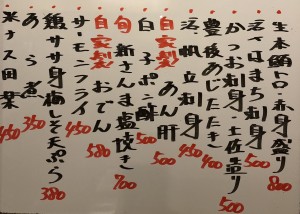 生本鮪トロ・赤身盛り 800
活〆はまち刺身 500
かつお刺身・土佐造り 500
豊後あじたたき 400
活帆立刺 450
自家製 あん肝 500
白子ポン酢 500
旬 新さんま塩焼き 700
自家製 おでん 580
サーモンフライ 450
鶏ササ身梅しそ天ぷら 380
あら煮 350
米ナス田楽 450